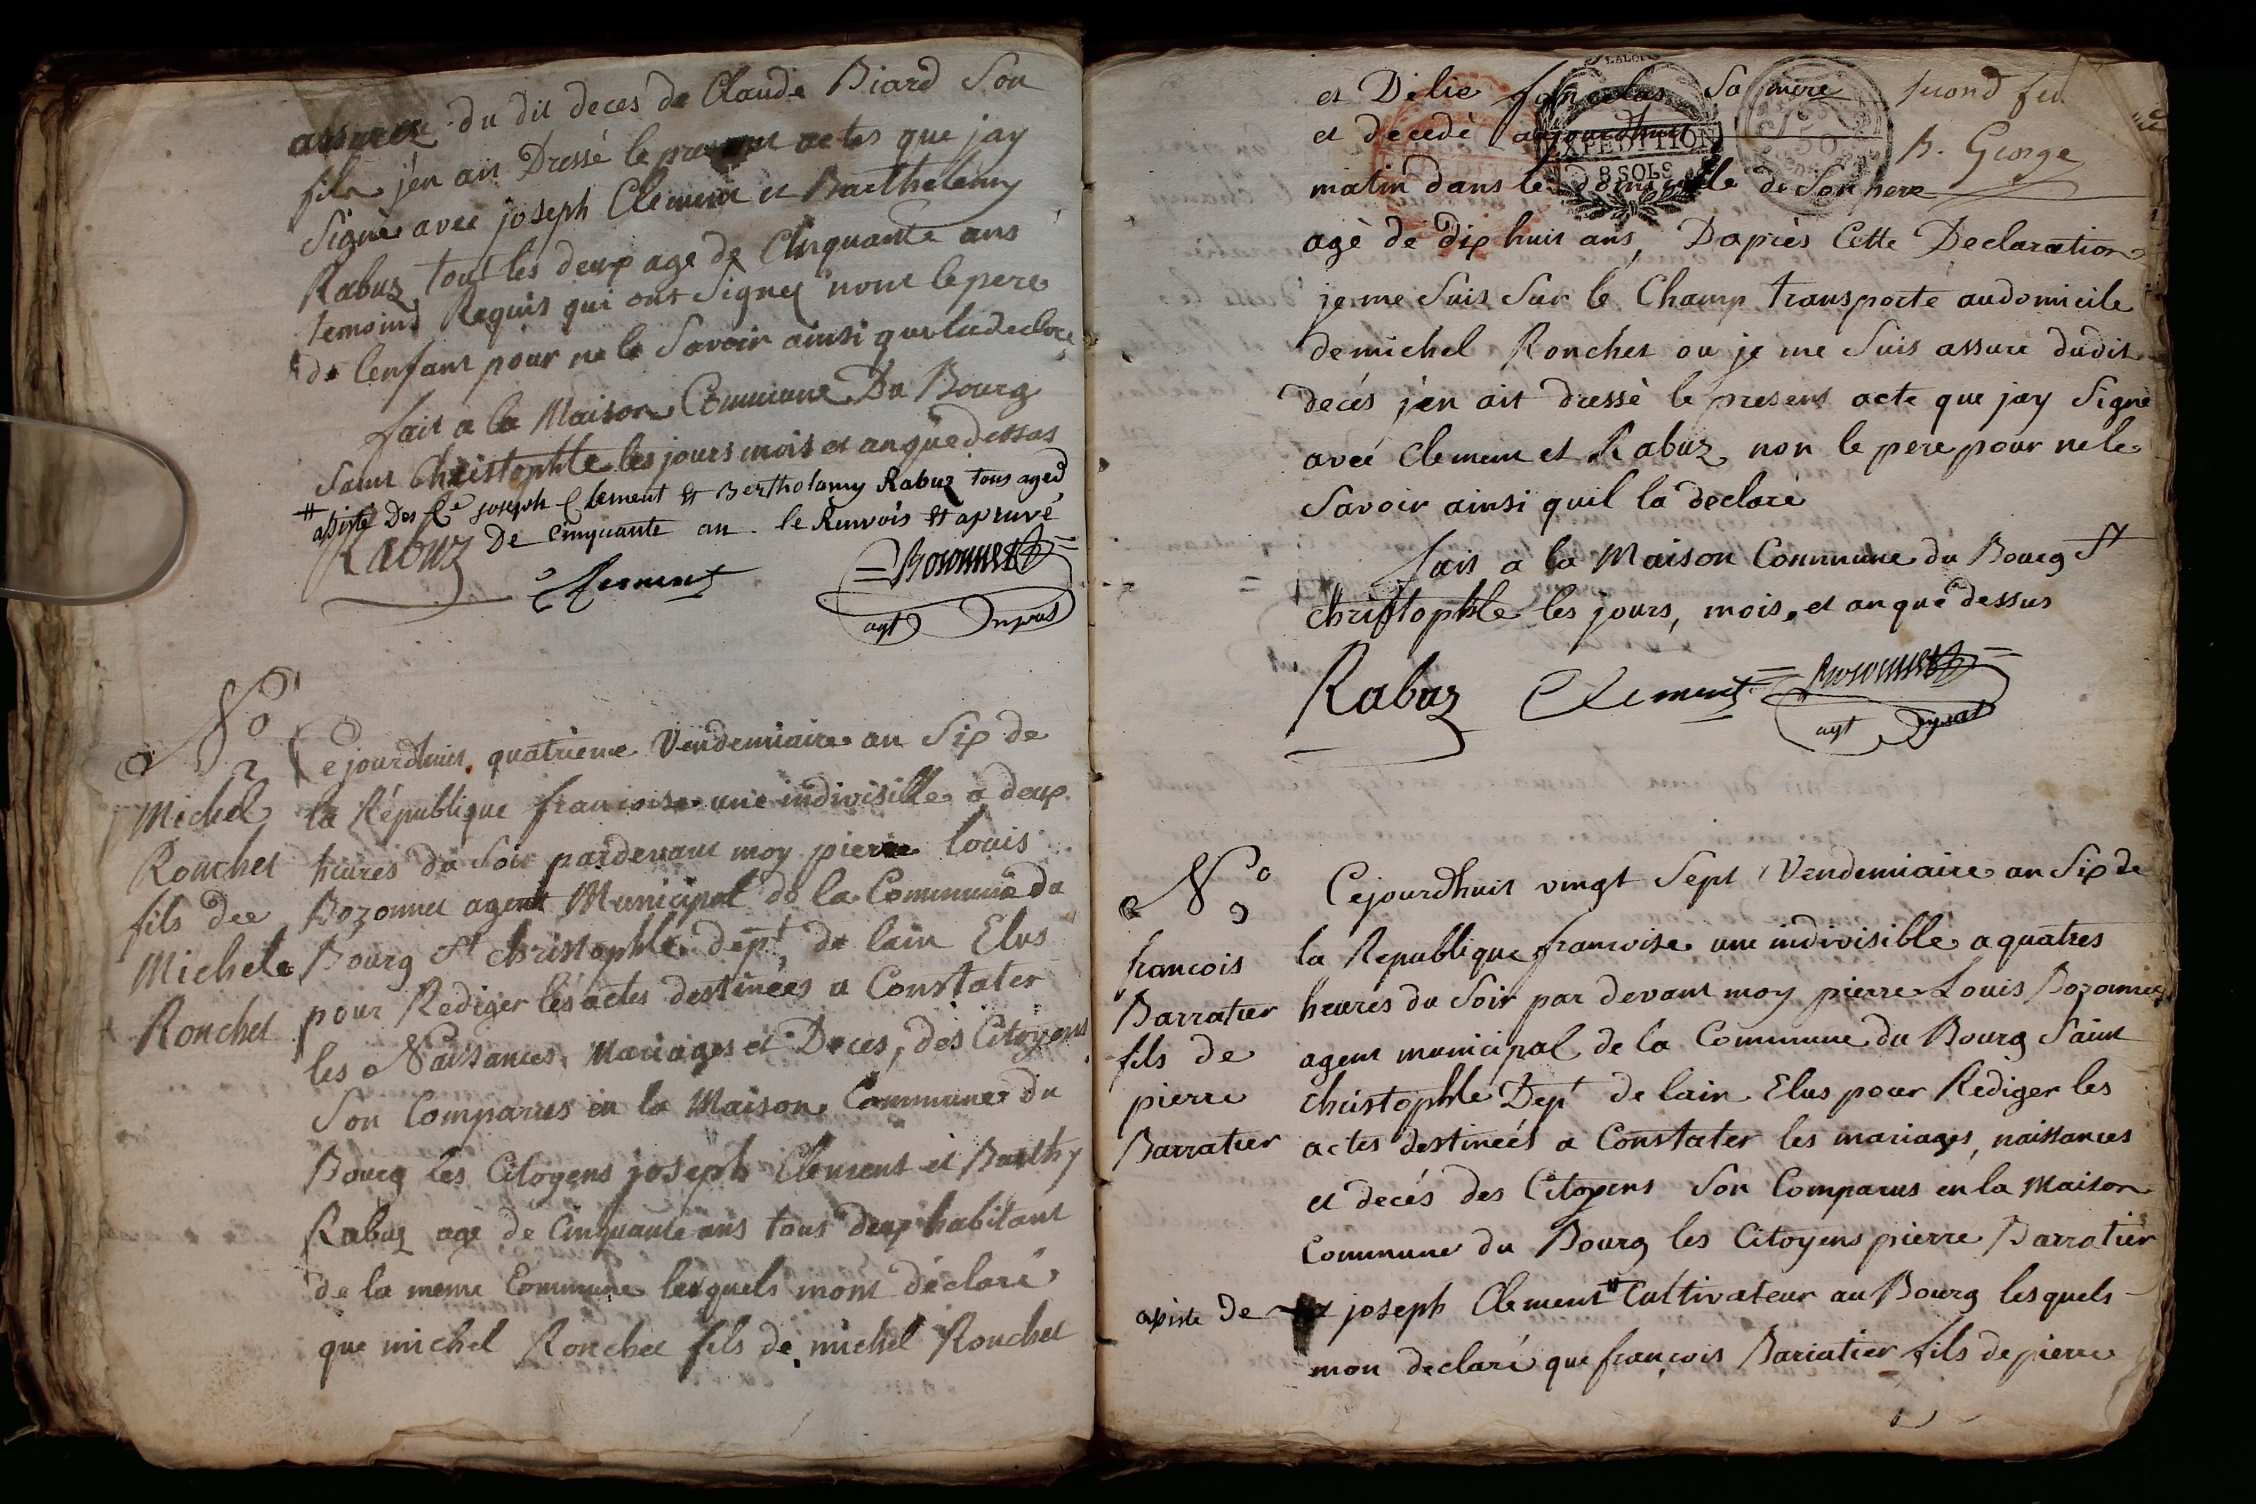 assurer du dit deces de Claude Biard Son
fils j'en ait Dressé le present actes que jay
Signé avec joseph Clement et Barthelemy
Rabuz tout les deux age de Cinquante ans
temoins Requis qui ont Signez nont le pere
de lenfant pour ne le Savoir ainsi que la declare
fait a la Maison Commune Du Bourg
Saint Christophle les jours mois et an que dessus
# assisté Des Ct joseph Clement et Bertholamy Rabuz tous aged
De Cinquante an . le Renvois et apruvé
Rabuz
Clement
Bozonnet
agt
No
2
Michel
Ronchet
fils dee
Michele
Ronchet
Cejourdhuis quatrieme Vendemiaire an Six de
la République francoise une indivisille a deux
heures du Soir pardevant moy pierre louis
Bozonnet agent Municipal de la Commune du
Bourg St christophle dept de lain Elus
pour Rediger les actes destinées a Constater
les Naissances, Mariages et Deces, des Citoyens
Son Comparus en la Maison Commune du
Bourg les Citoyens joseph Clement et Barthy
Rabuz age de Cinquante ans tous deux habitant
de la meme Commune lesquels mont déclaré
que michel Ronchet fils de michel Ronchet
LALOI
EXPEDITION
8 SOLS
et Delie Sa mere second feu
et decedé aujourdhuit B. George
matin dans le domicile de Son pere
agé de dix huit ans, Dapriès Cette Declaration
je me Suis Sur le Champ transporte audomicile
de michel Ronchet ou je me Suis assure dudit
decés j'en ait dressè le present acte que jay Signé
aveé Clement et Rabuz non le pere pour nele
Savoir ainsi quil la declaré
fait a la Maison Commune du Bourg St
christophle les jours, mois, et an que dessus
Rabuz Clement Bozonnet
agt
No
3
francois
Barratier
fils de
pierre
Barratier
Cejourdhuit vingt Sept Vendemiaire an Six de
la Republique francoise une indivisible a quatres
heures du Soir par devant moy pierre Louis Bozonnet
agent municipal de la Commune du Bourg Saint
christophle Dept de lain Elus pour Rediger les
actes destineés a Constater les mariages, naissances
et decés des Citoyens Son Comparus en la Maison
Commune du Bourg les Citoyens pierre Barratier
assiste de et joseph Clement # Cultivateur au Bourg lesquels
mon declaré que françois Bariatier fils de pierre